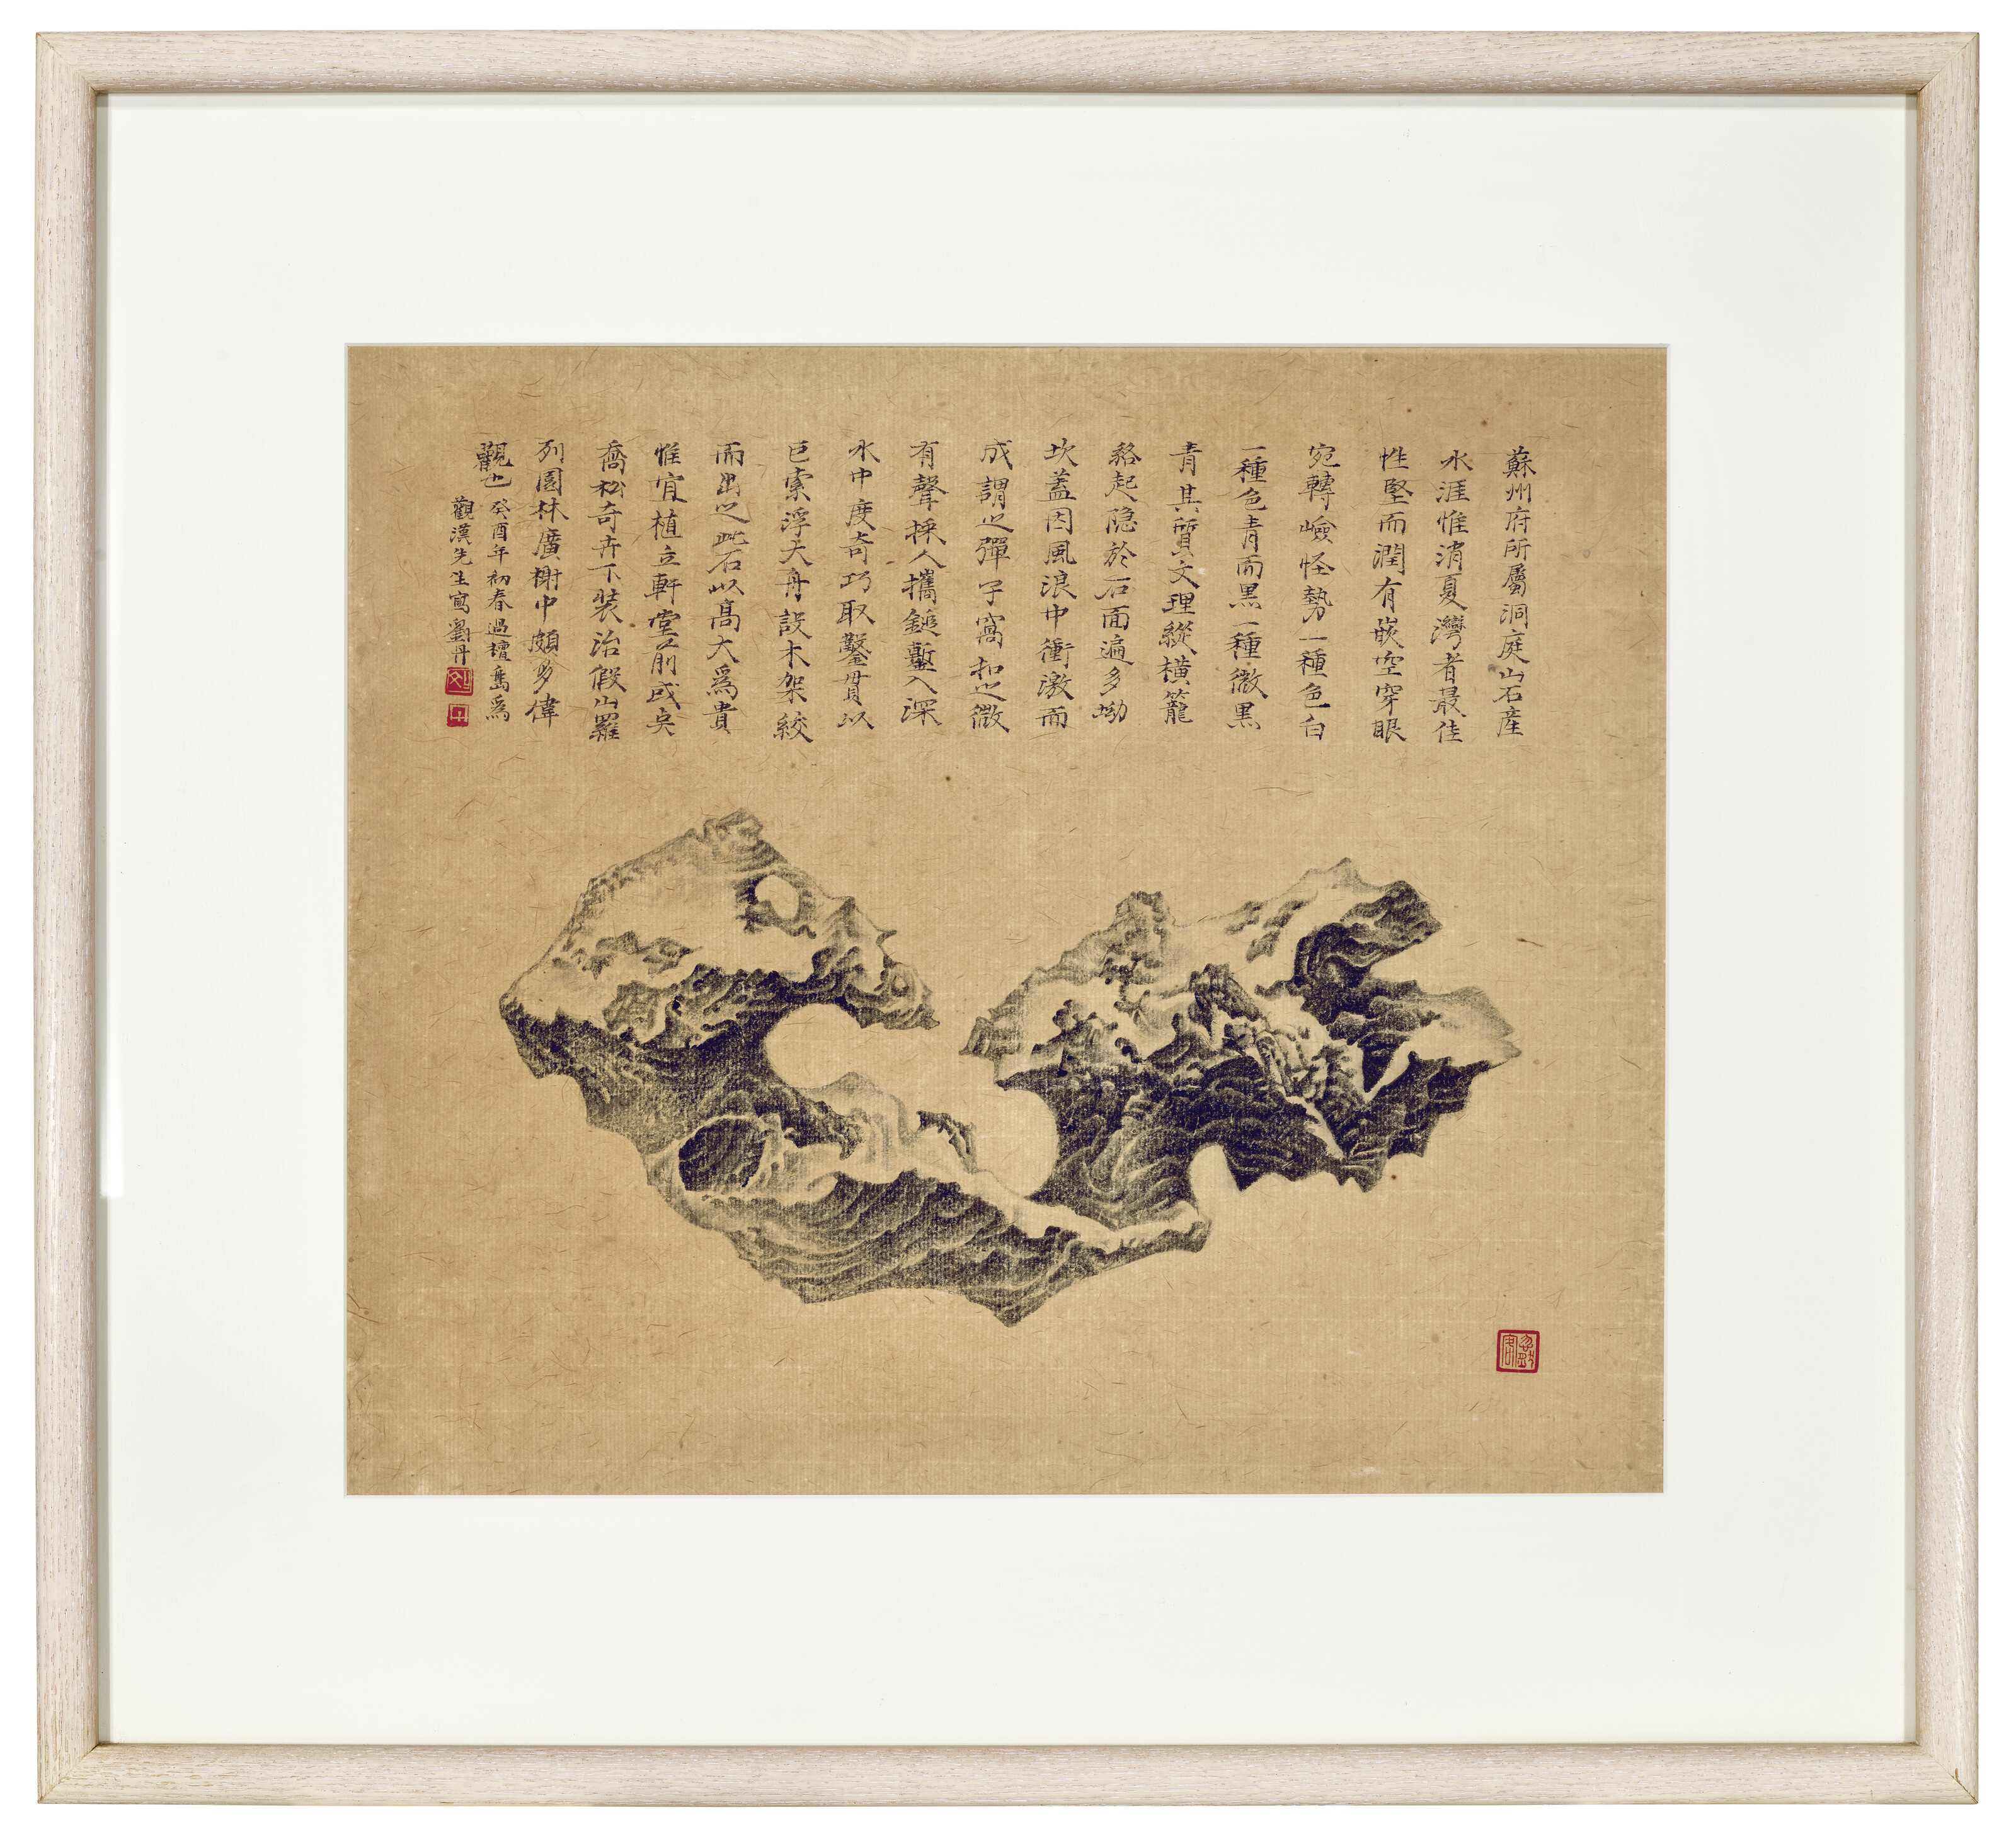 蘇州府所屬洞庭山石産
水涯惟消夏灣者最佳
性堅而潤有嵌空穿眼
宛轉嶮怪勢一種色白
一種色青而黑一種微黑
青其質文理縱橫籠
絡起隐於石面遍多坳
坎蓋因風浪中衝激而
成謂之彈子窩扣之微
有聲採人攜鎚鏨入深
水中度奇巧取鑿貫以
巨索浮大舟設木架絞
而出之此石以髙大爲貴
惟宜植立軒堂前或點
喬松奇卉下裝治假山羅
列園林廣榭中頗多偉
觀也
癸酉年初春過檀島爲
觀漢先生寫劉丹